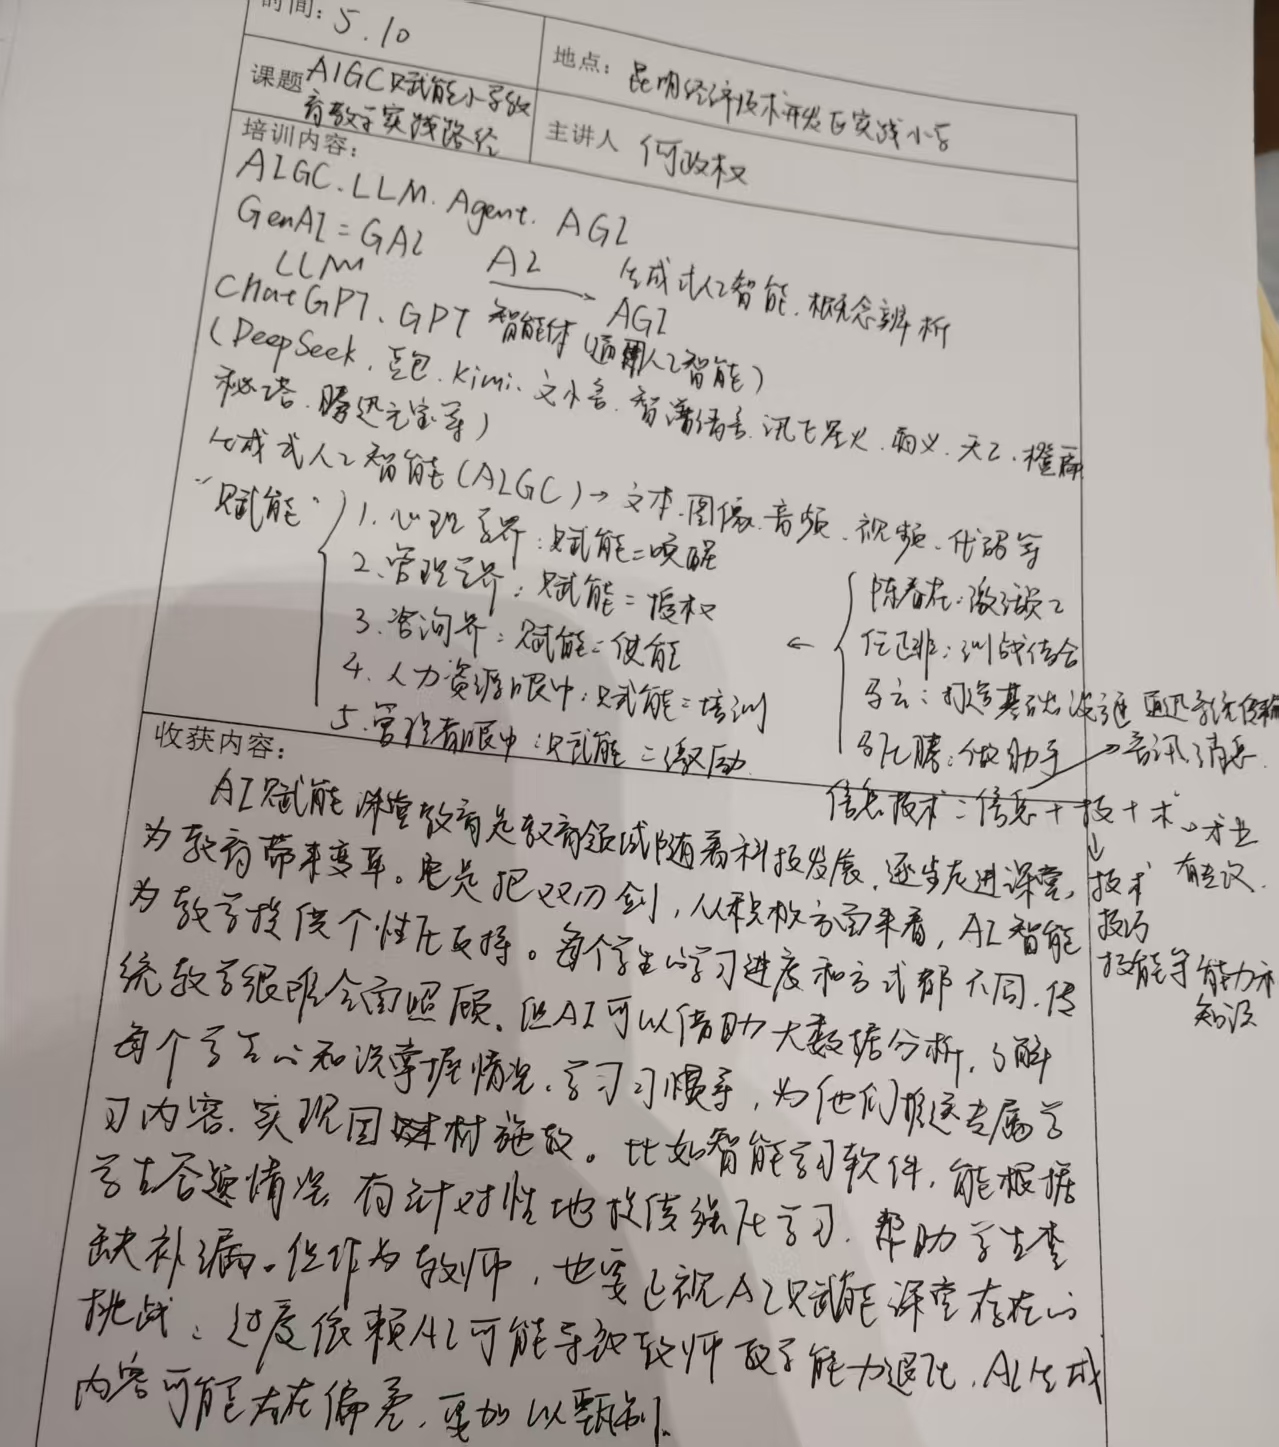 时间: 5.10
地点: 昆明经济技术开发区实践小学
课题 AIGC赋能小学教
育教学实践路径
主讲人 何政权
培训内容:
AIGC.LLM.Agent.AGI
GenAI=GAI
LLM
AI → AGI
生成式人工智能.概念辨析
ChatGPT、GPT 智能体(通用人工智能)
(DeepSeek.豆包.Kimi.文小言.智谱清言.讯飞星火.商义.天工.橙篇
秘塔.腾迅元宝等)
生成式人工智能(AIGC)→文本.图像.音频.视频、代码等
“赋能”
1.心理学界:赋能=唤醒
2、管理学界:赋能=授权
3.咨询界:赋能=使能
4.人力资源眼中:赋能=培训
5.管理者眼中:赋能=激励.
陈春花:激活员工
任正非:训战结合
马云:打造基础设施
马化腾:做助手
通迅系统传输
音讯,消息.
信息技术=信息+技+术
术业
有专攻.
技术
技巧
技能等
能力和
知识
收获内容:
AI赋能课堂教育是教育领域随着科技发展,逐步走进课堂,
为教育带来变革。它是把双刃剑,从积极方面来看,AI智能
为教学提供个性化支持。每个学生的学习进度和方式都不同.传
统教学很难全面照顾。但AI可以借助大数据分析,了解
每个学生的知识掌握情况.学习习惯等,为他们推送专属学
习内容.实现因材施教。比如智能学习软件,能根据
学生答题情况 有针对性地提供强化学习.帮助学生查
缺补漏。但作为教师,也要正视AI赋能课堂存在的
挑战、过度依赖AI可能导致教师教学能力退化.AI生成
内容可能存在偏差.要加以甄别.